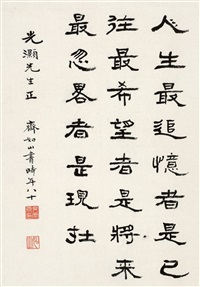 人生最追憶者是已
往最希望者是將来
最忽畧者是現在
光灝先生正
齊如山書時年八十